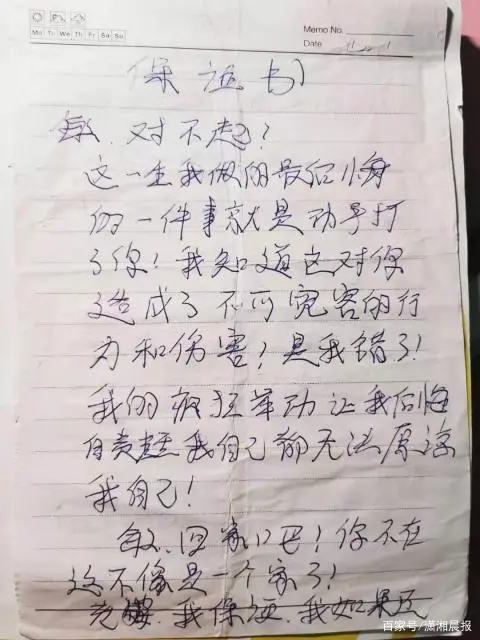 Mo Tu We Th Fr Sa Su
Memo No.
Date
保证书
敏、对不起!
这一生我做的最后悔
的一件事就是动手打
了你!我知道这对你
造成了不可宽容的行
为和伤害!是我错了!
我的疯狂举动让我后悔
自责 我自己都无法原谅
我自己!
敏、回家吧!你不在
这不像是一个家了!
我保证、我如果还
百家号/潇湘晨报